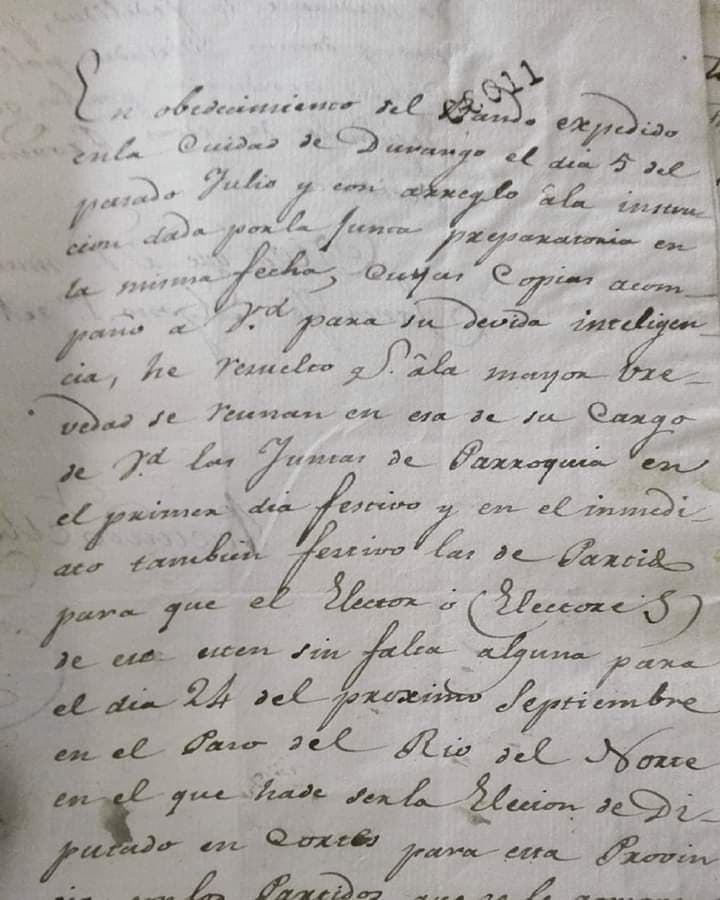 011
En obedecimiento del Bando expedido
en la Cuidad de Durango el dia 5 del
pasado Julio y con arreglo âla instruc
cion dada por la Junta preparatoria en
la misma fecha, cuyas Copias acom-
paño a V.d para su devida inteligen-
cia, he resuelto q.e âla mayor bre-
vedad se reunan en esa de su Cargo
de V.d las Juntas de Parroquia en
el primer dia festivo y en el inmedi-
ato tambien festivo las de Partido
para que el Elector ó (Electores)
de ese esten sin falta alguna para
el dia 24 del proximo Septiembre
en el Paso del Rio del Norte
en el que hade ser la Eleccion de Di-
putado en Cortes para esta Provin
cia con los Partidos que se le